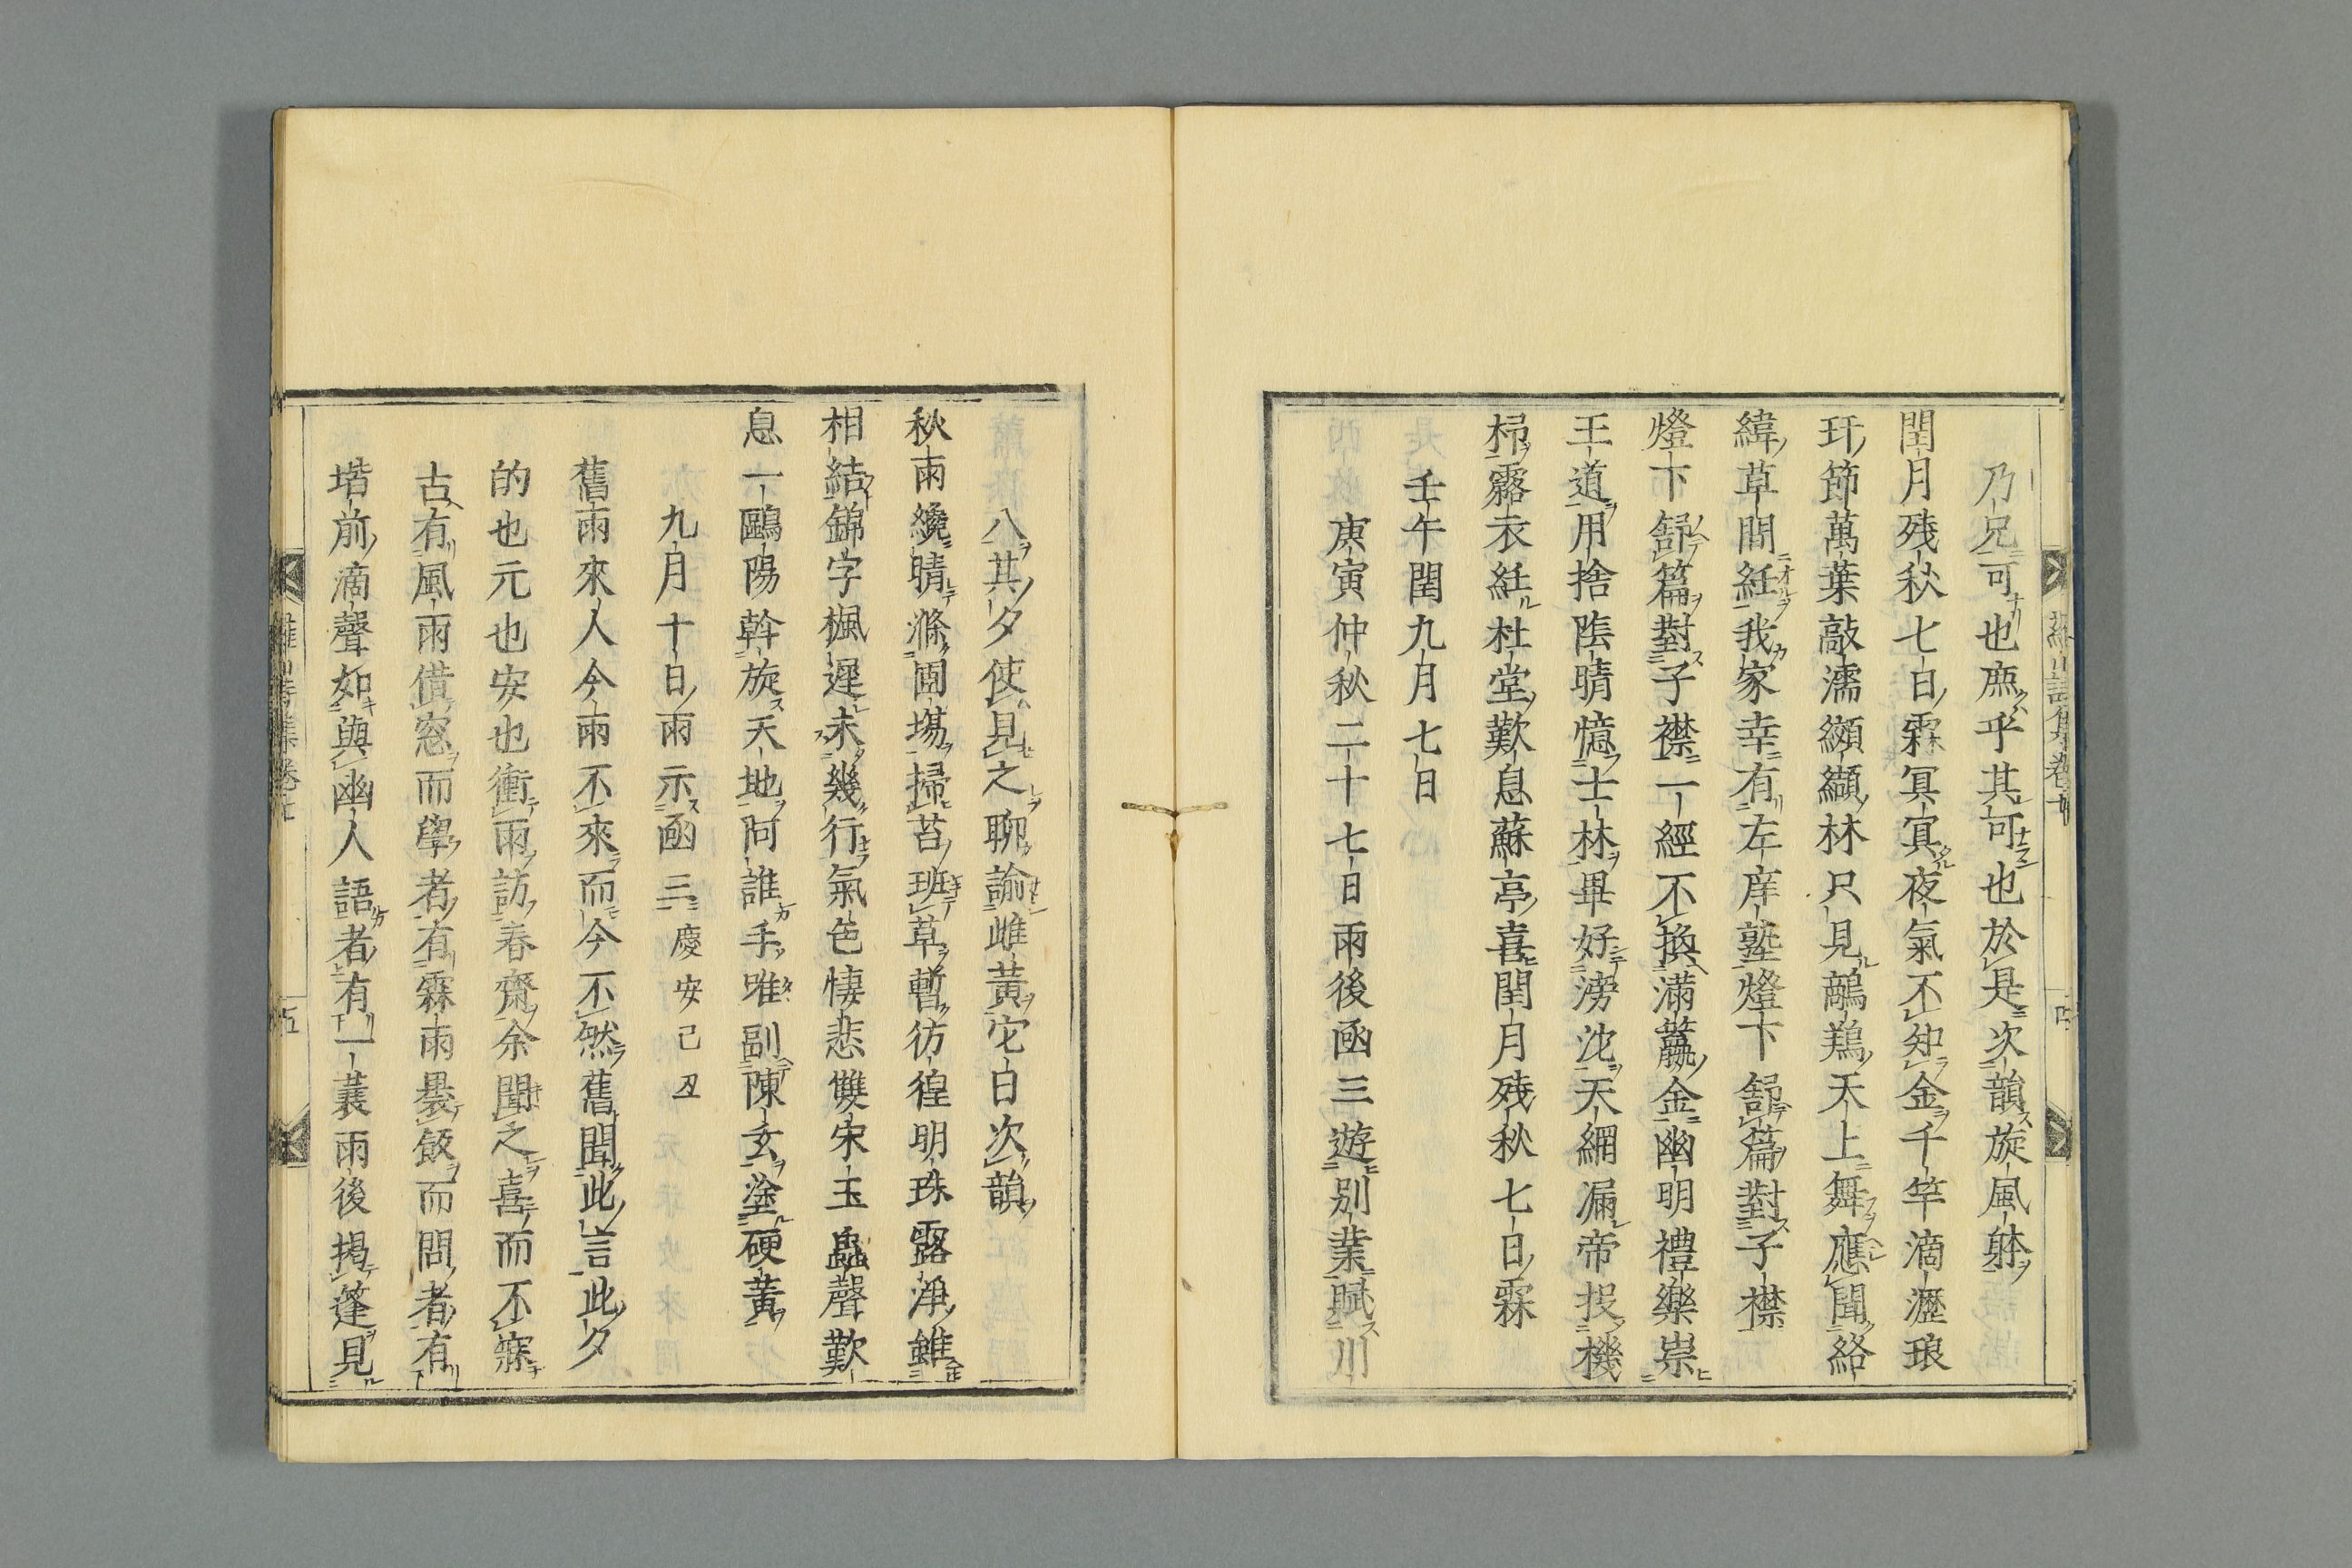 乃兄可也庶乎其可也於是次韻旋風躰
閏月残秋七日霖冥冥夜氣不知金千竿滴瀝琅
玕節萬葉敲濡纐纈林只見鷸鷄天上舞應聞絡
緯草間紝我家幸有左庠塾燈下舒篇對子襟
燈下舒篇對子襟一經不換滿籯金幽明禮樂崇
王道用捨陰晴憶士林畢好滂沱天網漏帝投機
杼露衣紝杜堂歎息蘇亭喜閏月残秋七日霖
壬午閏九月七日
庚寅仲秋二十七日雨後函三遊別業賦川
八其夕使見之聊諭雌黃它日次韻
秋雨纔晴滌圃塲掃苔班草暫彷徨明珠露淨雖
相結錦字楓遲未幾行氣色悽悲雙宋玉蟲聲歎
息一鷗陽斡旋天地阿誰手唯副陳玄塗硬黃
九月十日雨示函三慶安己丑
舊雨來人今雨不來而今不然舊聞此言此夕
的也元也安也衝雨訪春齋余聞之喜而不寐
古有風雨借窓而學者有霖雨裹飯而問者有
堦前滴聲如與幽人語者有一蓑雨後揭篷見